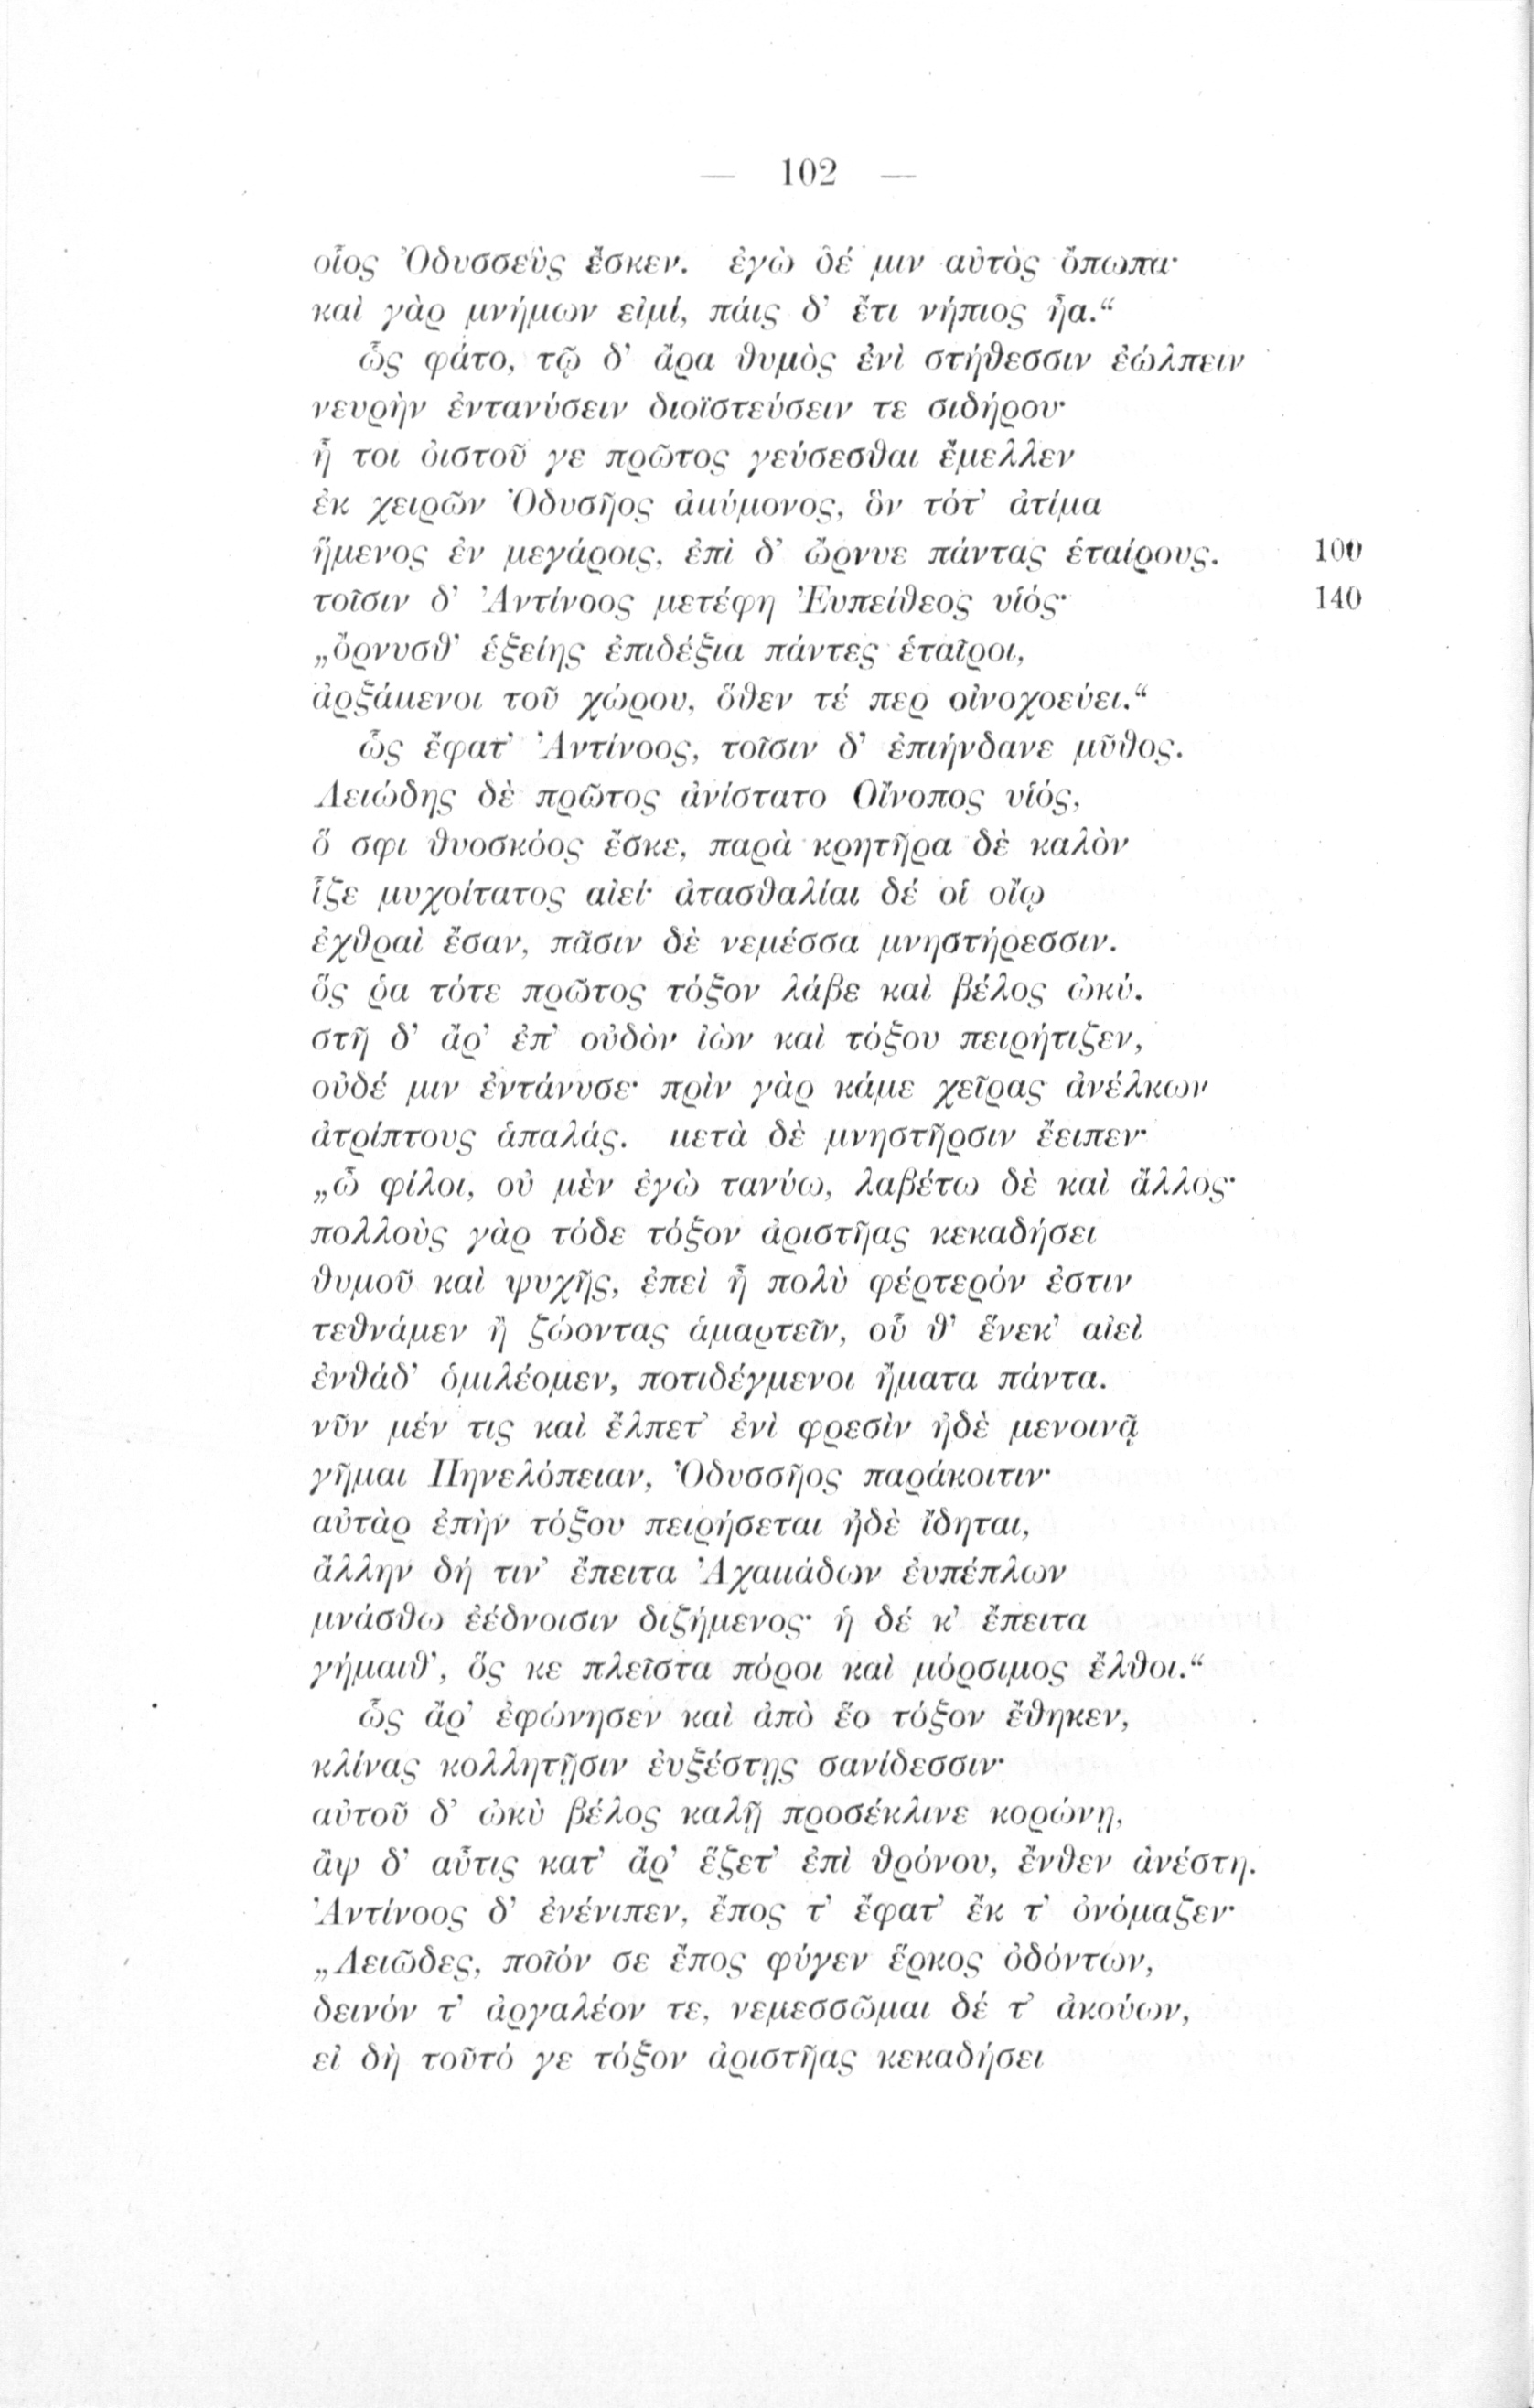 — 102 —
οἷος Ὀδυσσεὺς ἔσκεν. ἐγὼ δέ μιν αὐτὸς ὄπωπα·
καὶ γὰρ μνήμων εἰμί, πάις δ' ἔτι νήπιος ἦα.“
ὣς φάτο, τῷ δ' ἄρα θυμὸς ἐνὶ στήθεσσιν ἐώλπειν
νευρὴν ἐντανύσειν διοϊστεύσειν τε σιδήρου·
ἦ τοι ὀιστοῦ γε πρῶτος γεύσεσθαι ἔμελλεν
ἐκ χειρῶν Ὀδυσῆος ἀμύμονος, ὃν τότ' ἀτίμα
ἥμενος ἐν μεγάροις, ἐπὶ δ' ὤρνυε πάντας ἑταίρους. 100
τοῖσιν δ' Ἀντίνοος μετέφη Ἐυπείθεος υἱός· 140
„ὄρνυσθ' ἑξείης ἐπιδέξια πάντες ἑταῖροι,
ἀρξάμενοι τοῦ χώρου, ὅθεν τέ περ οἰνοχοεύει.“
ὣς ἔφατ' Ἀντίνοος, τοῖσιν δ' ἐπιήνδανε μῦθος.
Λειώδης δὲ πρῶτος ἀνίστατο Οἴνοπος υἱός,
ὅ σφι θυοσκόος ἔσκε, παρὰ κρητῆρα δὲ καλὸν
ἷζε μυχοίτατος αἰεί· ἀτασθαλίαι δέ οἱ οἴῳ
ἐχθραὶ ἔσαν, πᾶσιν δὲ νεμέσσα μνηστήρεσσιν.
ὅς ῥα τότε πρῶτος τόξον λάβε καὶ βέλος ὠκύ.
στῆ δ' ἄρ' ἐπ' οὐδὸν ἰὼν καὶ τόξου πειρήτιζεν,
οὐδέ μιν ἐντάνυσε· πρὶν γὰρ κάμε χεῖρας ἀνέλκων
ἀτρίπτους ἁπαλάς. μετὰ δὲ μνηστῆρσιν ἔειπεν·
„ὦ φίλοι, οὐ μὲν ἐγὼ τανύω, λαβέτω δὲ καὶ ἄλλος·
πολλοὺς γὰρ τόδε τόξον ἀριστῆας κεκαδήσει
θυμοῦ καὶ ψυχῆς, ἐπεὶ ἦ πολὺ φέρτερόν ἐστιν
τεθνάμεν ἢ ζώοντας ἁμαρτεῖν, οὗ θ' ἕνεκ' αἰεὶ
ἐνθάδ' ὁμιλέομεν, ποτιδέγμενοι ἤματα πάντα.
νῦν μέν τις καὶ ἔλπετ' ἐνὶ φρεσὶν ἠδὲ μενοινᾷ
γῆμαι Πηνελόπειαν, Ὀδυσσῆος παράκοιτιν·
αὐτὰρ ἐπὴν τόξου πειρήσεται ἠδὲ ἴδηται,
ἄλλην δή τιν' ἔπειτα Ἀχαιιάδων ἐυπέπλων
μνάσθω ἐέδνοισιν διζήμενος· ἡ δέ κ' ἔπειτα
γήμαιθ', ὅς κε πλεῖστα πόροι καὶ μόρσιμος ἔλθοι.“
ὣς ἄρ' ἐφώνησεν καὶ ἀπὸ ἕο τόξον ἔθηκεν,
κλίνας κολλητῇσιν ἐυξέστῃς σανίδεσσιν·
αὐτοῦ δ' ὠκὺ βέλος καλῇ προσέκλινε κορώνῃ,
ἂψ δ' αὖτις κατ' ἄρ' ἕζετ' ἐπὶ θρόνου, ἔνθεν ἀνέστη.
Ἀντίνοος δ' ἐνένιπεν, ἔπος τ' ἔφατ' ἔκ τ' ὀνόμαζεν·
„Λειῶδες, ποῖόν σε ἔπος φύγεν ἕρκος ὀδόντων,
δεινόν τ' ἀργαλέον τε, νεμεσσῶμαι δέ τ' ἀκούων,
εἰ δὴ τοῦτό γε τόξον ἀριστῆας κεκαδήσει